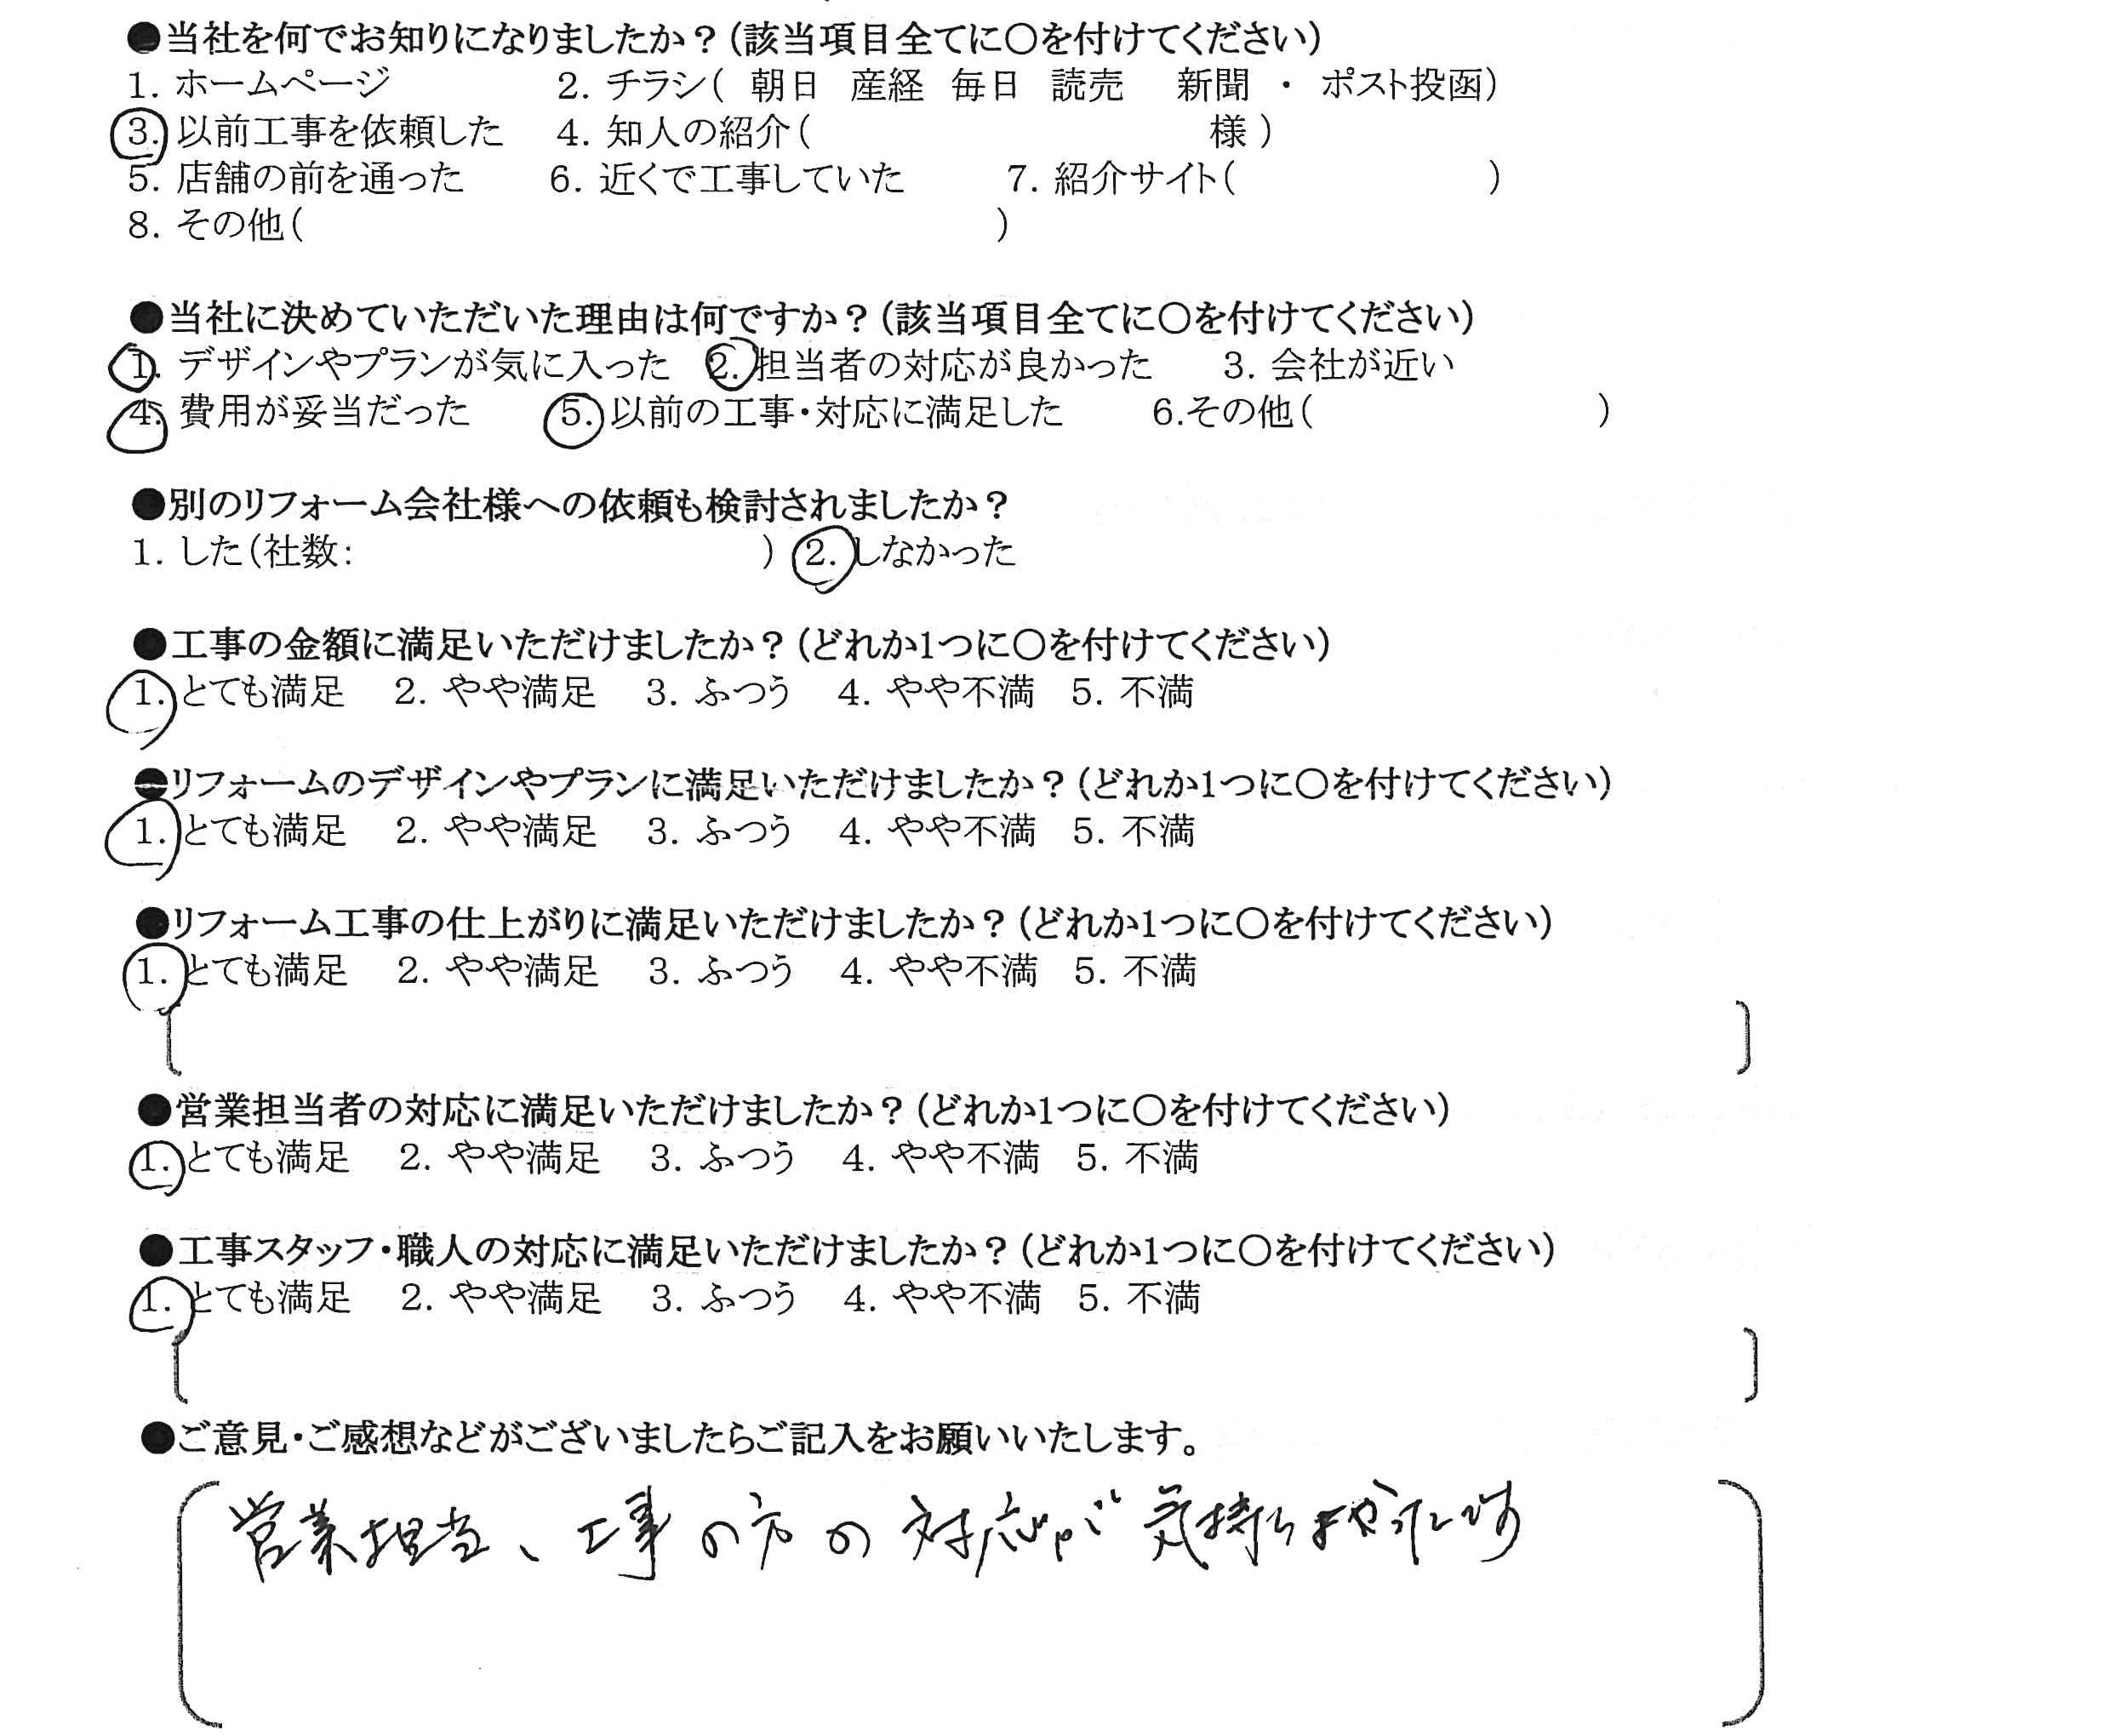 ●当社を何でお知りになりましたか？（該当項目全てに〇を付けてください）
1. ホームページ 2. チラシ（ 朝日 産経 毎日 読売 新聞 ・ ポスト投函）
3. 以前工事を依頼した 4. 知人の紹介（ 様 ）
5. 店舗の前を通った 6. 近くで工事していた 7. 紹介サイト（ ）
8. その他（ ）
●当社に決めていただいた理由は何ですか？（該当項目全てに〇を付けてください）
1. デザインやプランが気に入った 2. 担当者の対応が良かった 3. 会社が近い
4. 費用が妥当だった 5. 以前の工事・対応に満足した 6.その他（ ）
●別のリフォーム会社様への依頼も検討されましたか？
1. した（社数： ） 2. しなかった
●工事の金額に満足いただけましたか？（どれか1つに〇を付けてください）
1. とても満足 2. やや満足 3. ふつう 4. やや不満 5. 不満
●リフォームのデザインやプランに満足いただけましたか？（どれか1つに〇を付けてください）
1. とても満足 2. やや満足 3. ふつう 4. やや不満 5. 不満
●リフォーム工事の仕上がりに満足いただけましたか？（どれか1つに〇を付けてください）
1. とても満足 2. やや満足 3. ふつう 4. やや不満 5. 不満
●営業担当者の対応に満足いただけましたか？（どれか1つに〇を付けてください）
1. とても満足 2. やや満足 3. ふつう 4. やや不満 5. 不満
●工事スタッフ・職人の対応に満足いただけましたか？（どれか1つに〇を付けてください）
1. とても満足 2. やや満足 3. ふつう 4. やや不満 5. 不満
●ご意見・ご感想などがございましたらご記入をお願いいたします。
営業担当、工事の方の対応が気持ちよかったです